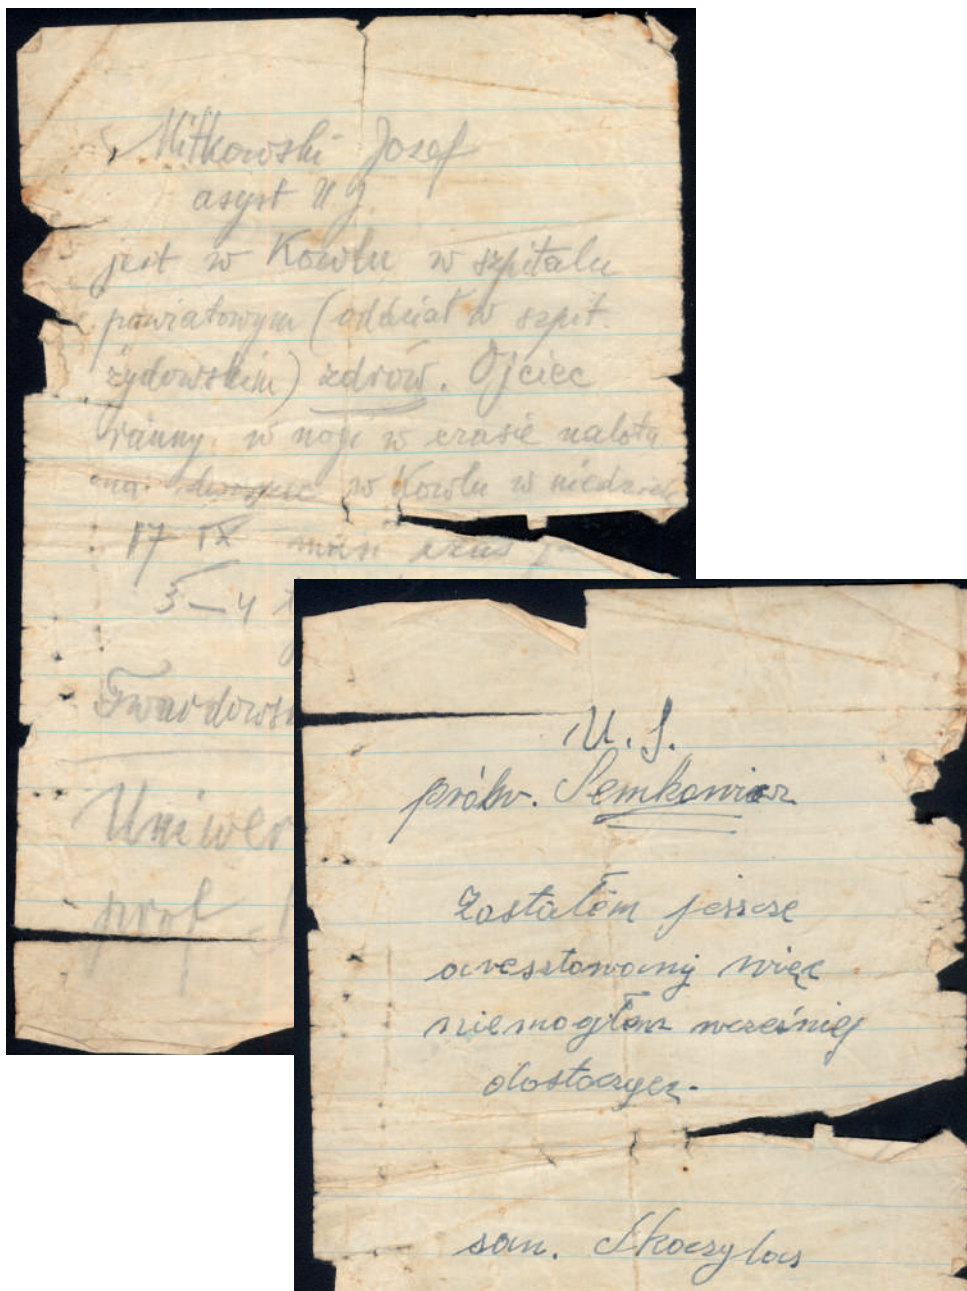 Mitkowski Józef
asyst U J.
jest w Kowlu w szpitalu
powiatowym (oddział w szpit.
żydowskim) zdrów. Ojciec
ranny w nogę w czasie nalotu
na dworzec w Kowlu w niedzielę
17 IX może czas
3-4
Uniwer
prof
U. J.
Semkowicz
Zostałem jeszcze
aresztowany więc
niemogłem wcześniej
dostarzycz.
san. Skoczylas